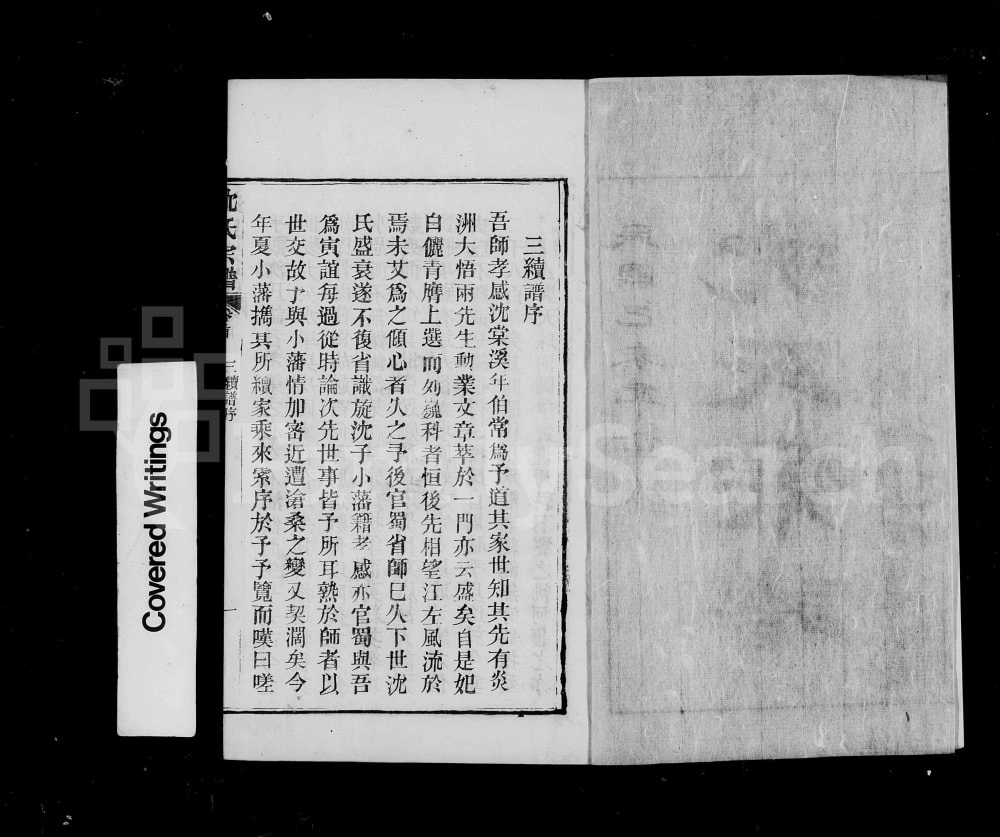 三續譜序
吾師孝感沈棠溪年伯常爲予道其家世知其先有炎
洲大悟兩先生動業文章萃於一門亦云盛矣自是妃
白儷青膺上選而列巍科者恒後先相望江左風流於
焉未艾爲之傾心者久之予後官蜀省師已久下世沈
氏盛衰遂不復省識旋沈子小藩籍孝感亦官蜀與吾
爲寅誼每過從時論次先世事皆予所耳熟於師者以
世交故予與小藩情加密近遭滄桑之變又契濶矣今
年夏小藩攜其所續家乘來索序於予予覽而嘆曰嗟
沈氏宗譜
三續譜序
一
Covered Writings